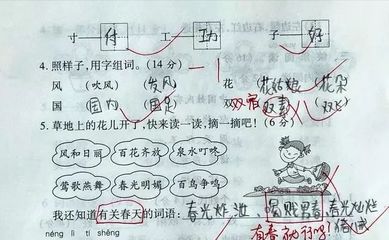 寸—付 工—功 子—好
4. 照样子，用字组词。(14 分) -1
风 (吹风) (发风) 花 (花姑娘) (花朵)
国 (国内) (国足) 双 (双宿) (双素) (双飞)
5. 草地上的花儿开了，快来读一读，摘一摘吧！(6 分)
风和日丽 百花齐放 泉水叮咚
莺歌燕舞 春光明媚 百鸟争鸣
我还知道有关春天的词语：春光灿烂 思春 春光灿烂 猪戒
有春就行吗？
néng lì tí shēng